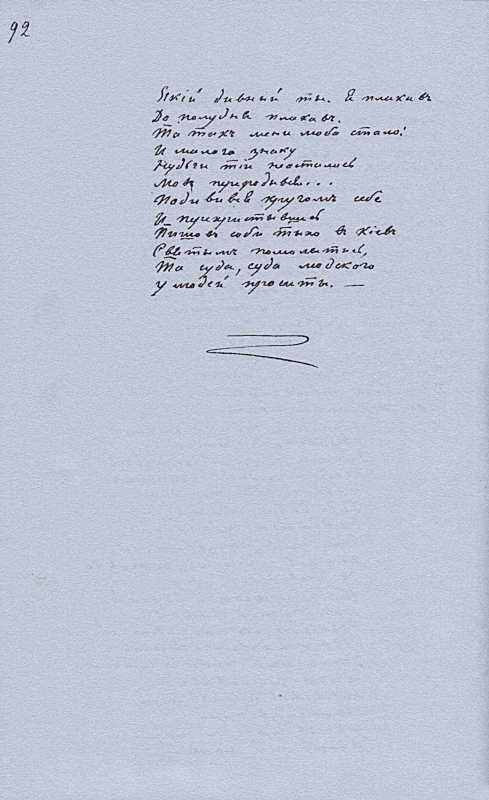 92
Якій дивный ты. Я плакавъ
До полудня плакавъ.
Та такъ мени любо стало!
И малого знаку
Нудьги тіи неосталось
Мовъ переродывся...
Подывывся кругомъ себе
И перехрыстывшись
Пишовъ соби тыхо въ Кіевъ
Святымъ помолытись,
Та суда, суда людского
У людей просыты. —